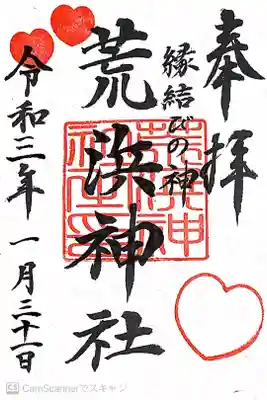 奉拝
縁結びの神
荒浜神社
令和三年 一月三十一日
CS CamScannerでスキャン